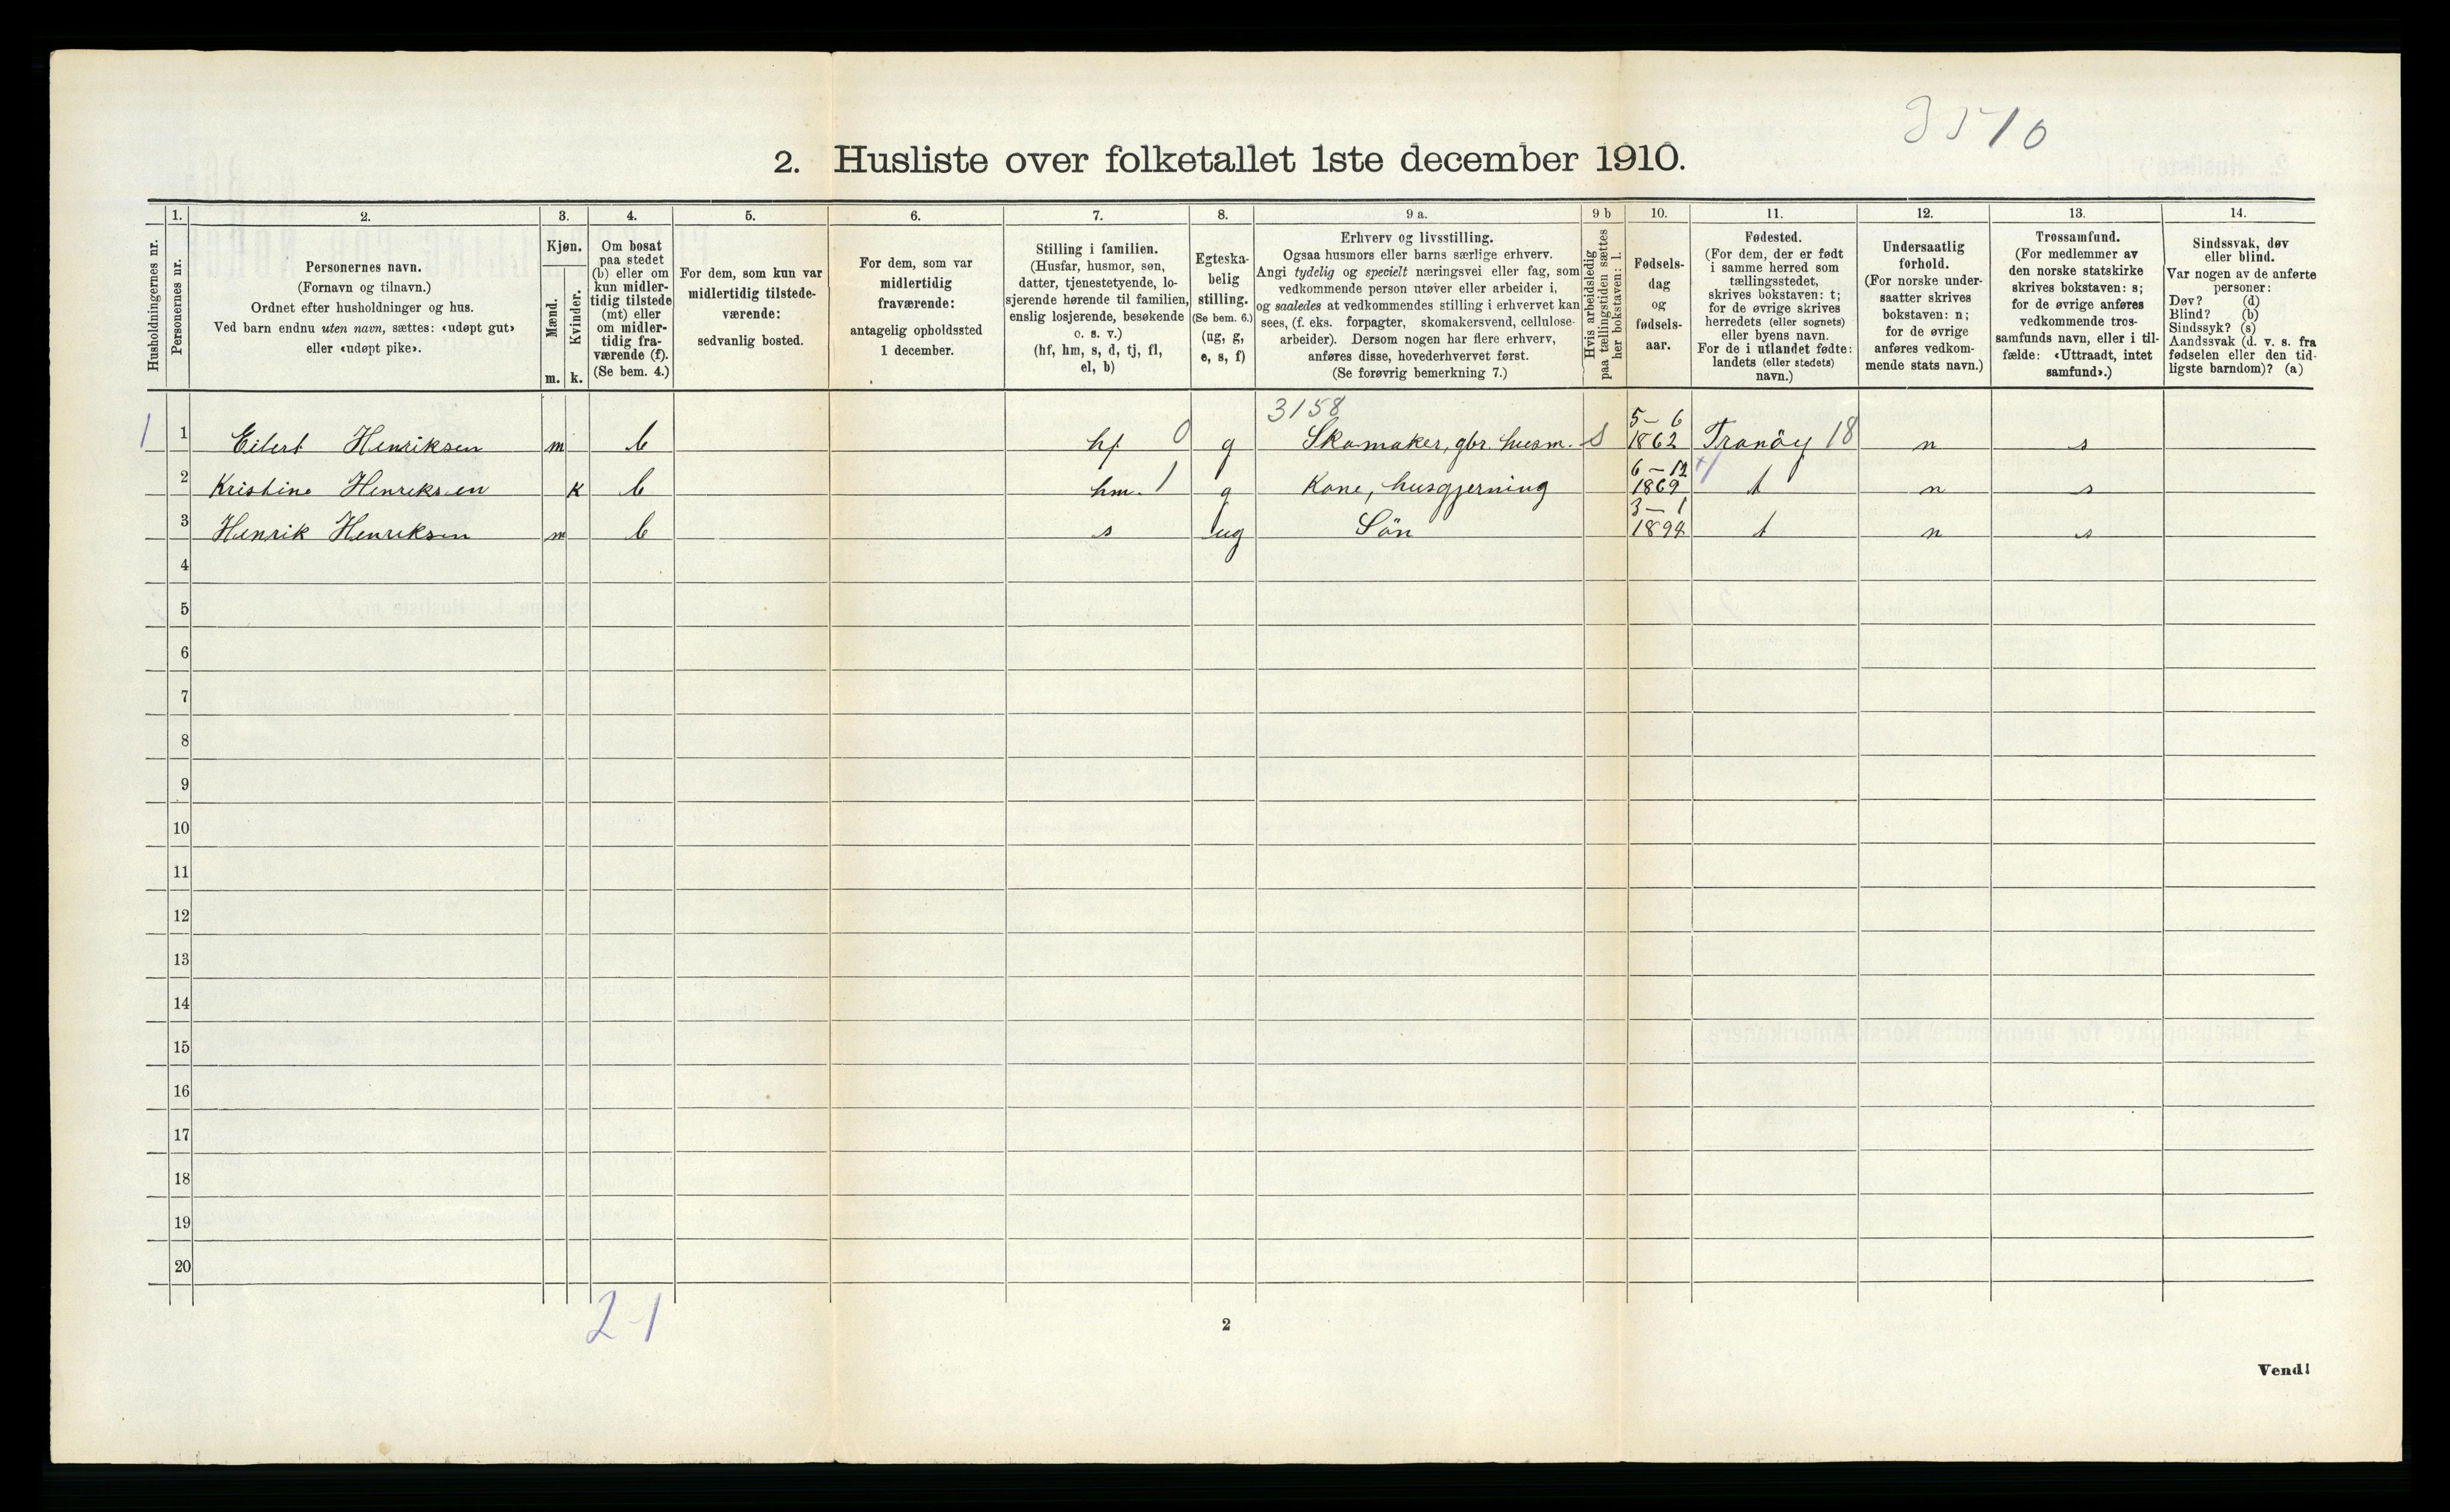 3510
2. Husliste over folketallet 1ste december 1910.
Husholdningernes nr.
1.
Personernes nr.
2.
Personernes navn.
(Fornavn og tilnavn.)
Ordnet efter husholdninger og hus.
Ved barn endnu uten navn, sættes: «udøpt gut»
eller «udøpt pike».
3.
Kjøn.
Mænd.
Kvinder.
m. k.
4.
Om bosat
paa stedet
(b) eller om
kun midler-
tidig tilstede
(mt) eller
om midler-
tidig fra-
værende (f).
(Se bem. 4.)
5.
For dem, som kun var
midlertidig tilstede-
værende:
sedvanlig bosted.
6.
For dem, som var
midlertidig
fraværende:
antagelig opholdssted
1 december.
7.
Stilling i familien.
(Husfar, husmor, søn,
datter, tjenestetyende, lo-
sjerende hørende til familien,
enslig losjerende, besøkende
o. s. v.)
(hf, hm, s, d, tj, fl,
el, b)
8.
Egteska-
belig
stilling.
(Se bem. 6.)
(ug, g,
e, s, f)
9 a.
Erhverv og livsstilling.
Ogsaa husmors eller barns særlige erhverv.
Angi tydelig og specielt næringsvei eller fag, som
vedkommende person utøver eller arbeider i,
og saaledes at vedkommendes stilling i erhvervet kan
sees, (f. eks. forpagter, skomakersvend, cellulose-
arbeider). Dersom nogen har flere erhverv,
anføres disse, hovederhvervet først.
(Se forøvrig bemerkning 7.)
9 b
Hvis arbeidsledig
paa tællingstiden sættes
her bokstaven: l.
10.
Fødsels-
dag
og
fødsels-
aar.
11.
Fødested.
(For dem, der er født
i samme herred som
tællingsstedet,
skrives bokstaven: t;
for de øvrige skrives
herredets (eller sognets)
eller byens navn.
For de i utlandet fødte:
landets (eller stedets)
navn.)
12.
Undersaatlig
forhold.
(For norske under-
saatter skrives
bokstaven: n;
for de øvrige
anføres vedkom-
mende stats navn.)
13.
Trossamfund.
(For medlemmer av
den norske statskirke
skrives bokstaven: s;
for de øvrige anføres
vedkommende tros-
samfunds navn, eller i til-
fælde: «Uttraadt, intet
samfund».)
14.
Sindssvak, døv
eller blind.
Var nogen av de anførte
personer:
Døv? (d)
Blind? (b)
Sindssyk? (s)
Aandssvak (d. v. s. fra
fødselen eller den tid-
ligste barndom)? (a)
3158
1 1 Eilert Henriksen m b hf 0 g Skomaker, gbr. husm. S 5-6 1862 Tranöy 18 n s
2 Kristine Henriksen k b hm. 1 g Kone, husgjerning 6-12 1869 t n s
3 Henrik Henriksen m b s ug Sön 3-1 1894 t n s
4
5
6
7
8
9
10
11
12
13
14
15
16
17
18
19
20
2-1
2
Vend!